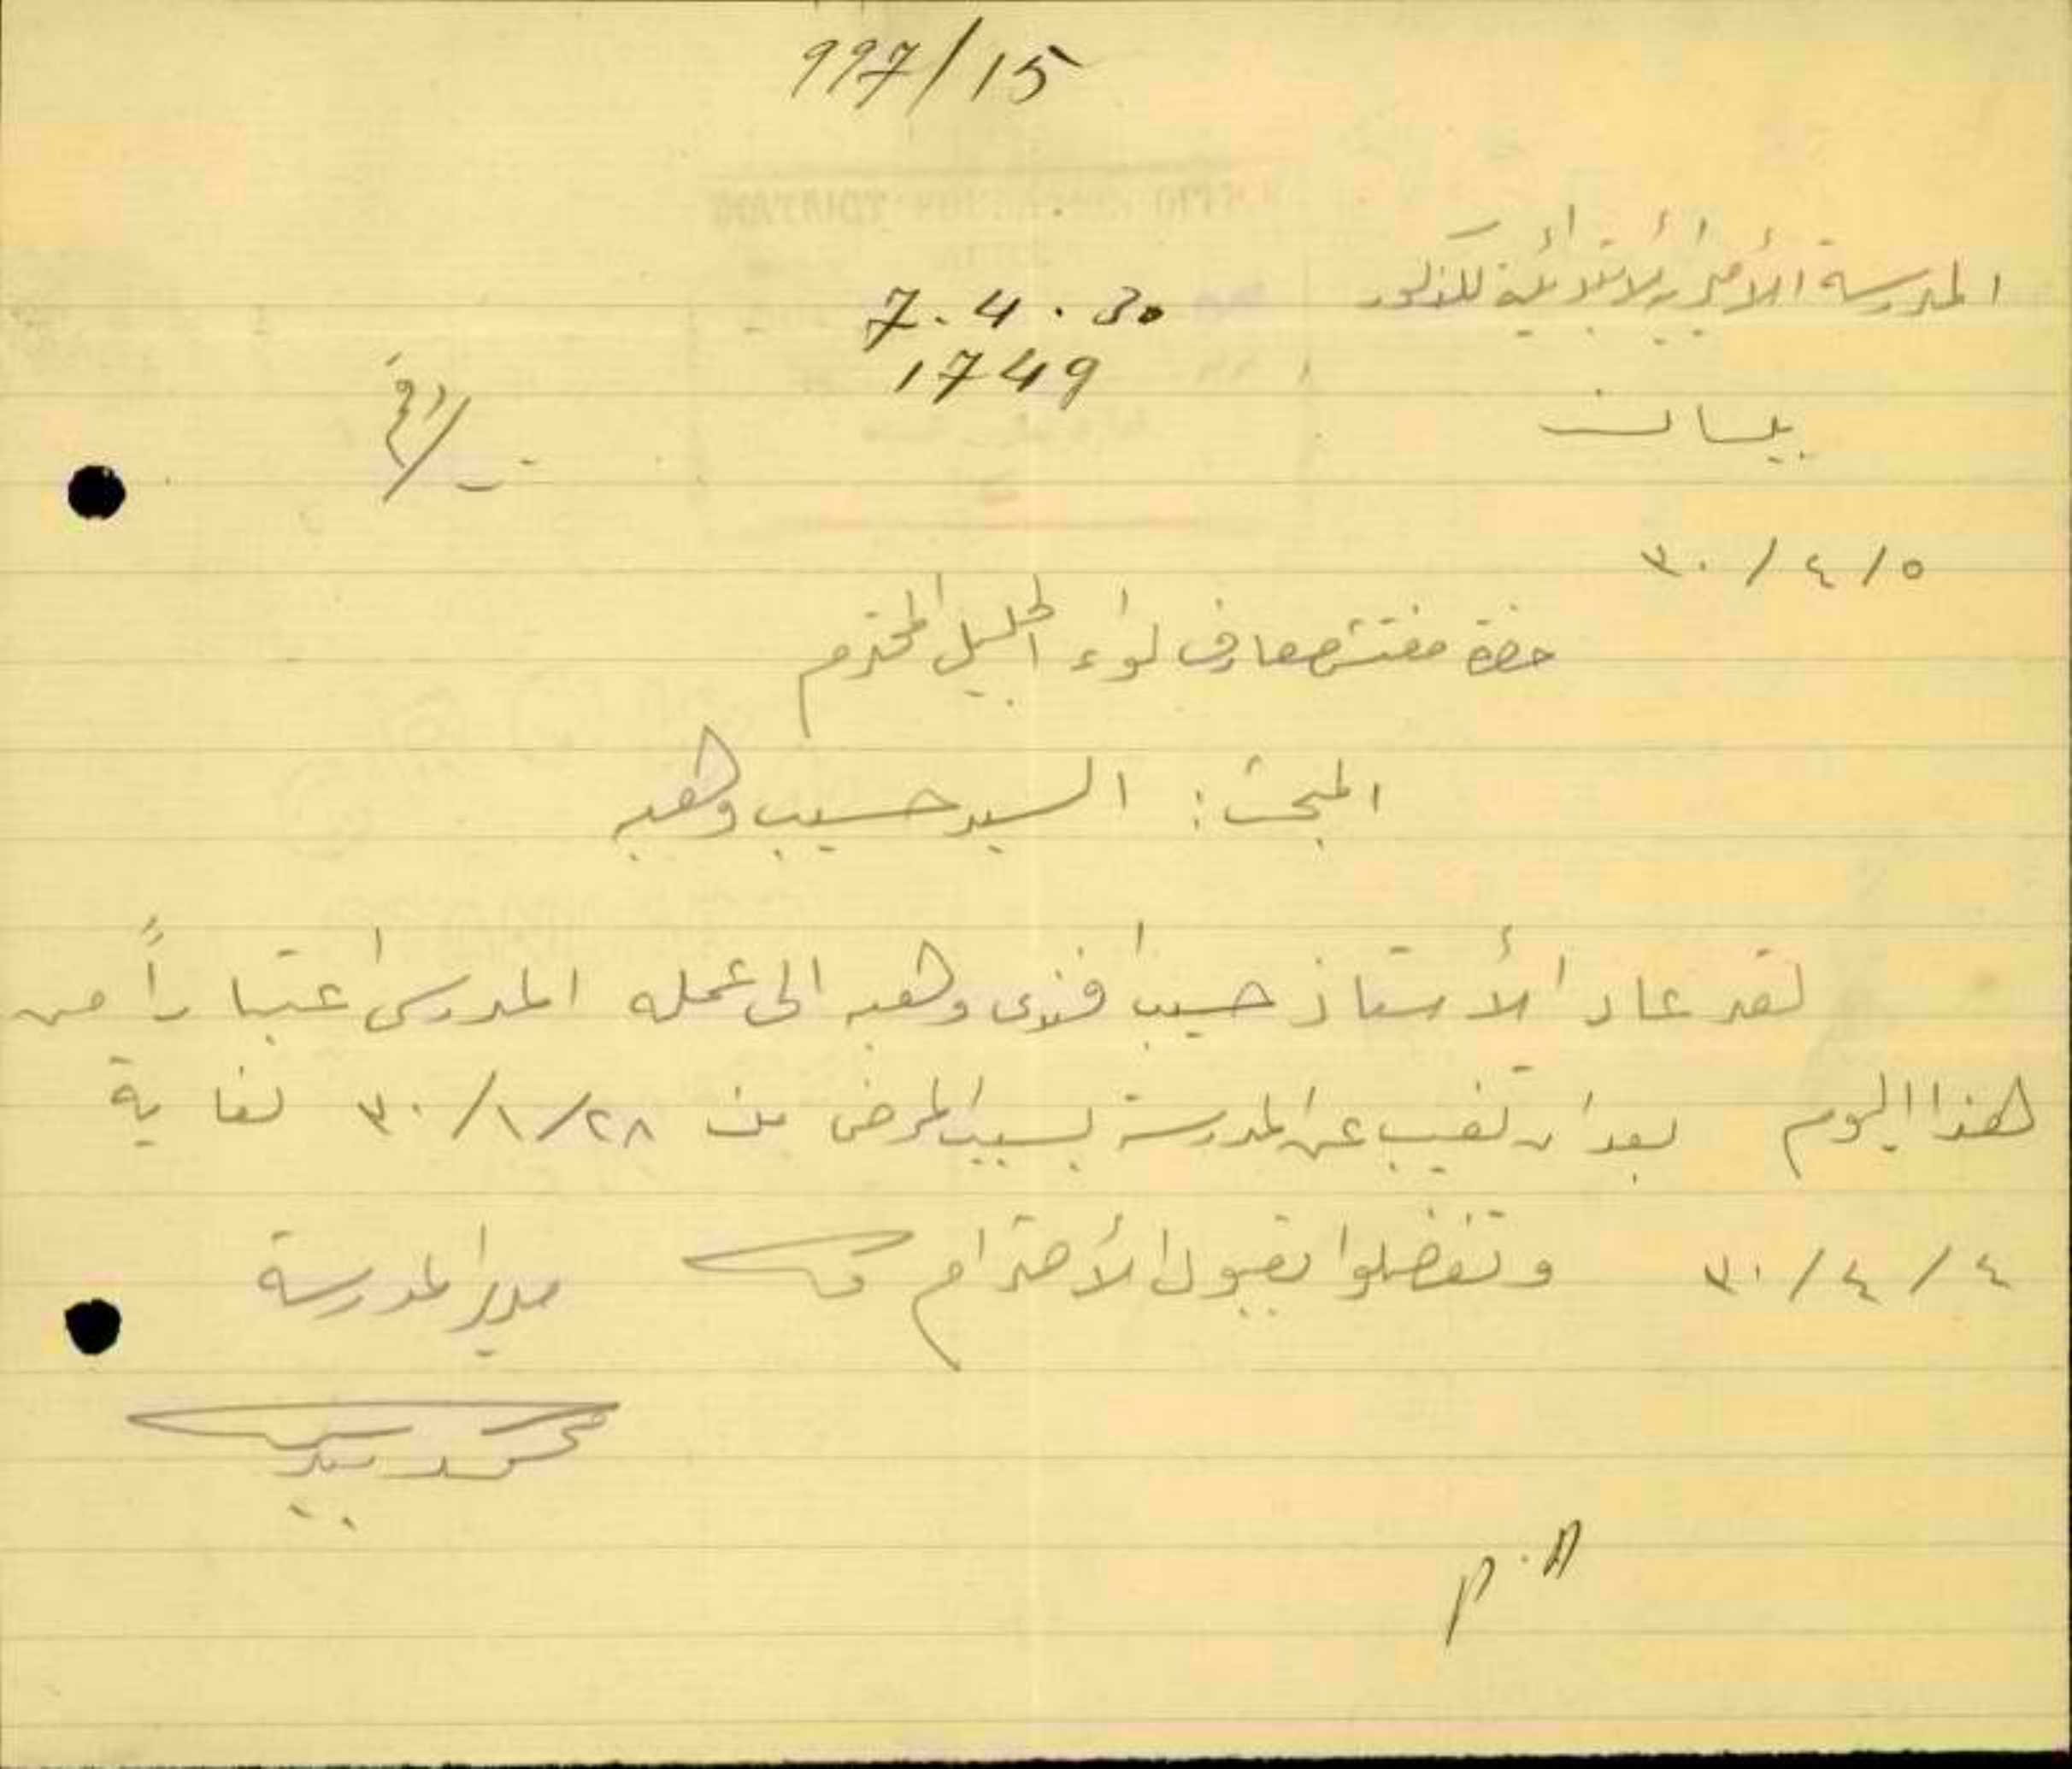 997/15
المدرسة الأميرية الابتدائية للذكور
7.4.30
1749
بيسان
٣٠/٤/٥
حضرة مفتش معارف لواء الجليل المحترم
المبحث: السيد حسيب وهبه
لقد عاد الأستاذ حسيب افندي وهبه الى عمله المدرسي اعتباراً من
هذا اليوم بعد ان تغيب عن المدرسة بسبب المرض من ٣٠/١/٢٨ لغاية
٣٠/٤/٤ وتفضلوا بقبول الأحترام
مدير المدرسة
محمد
P.A